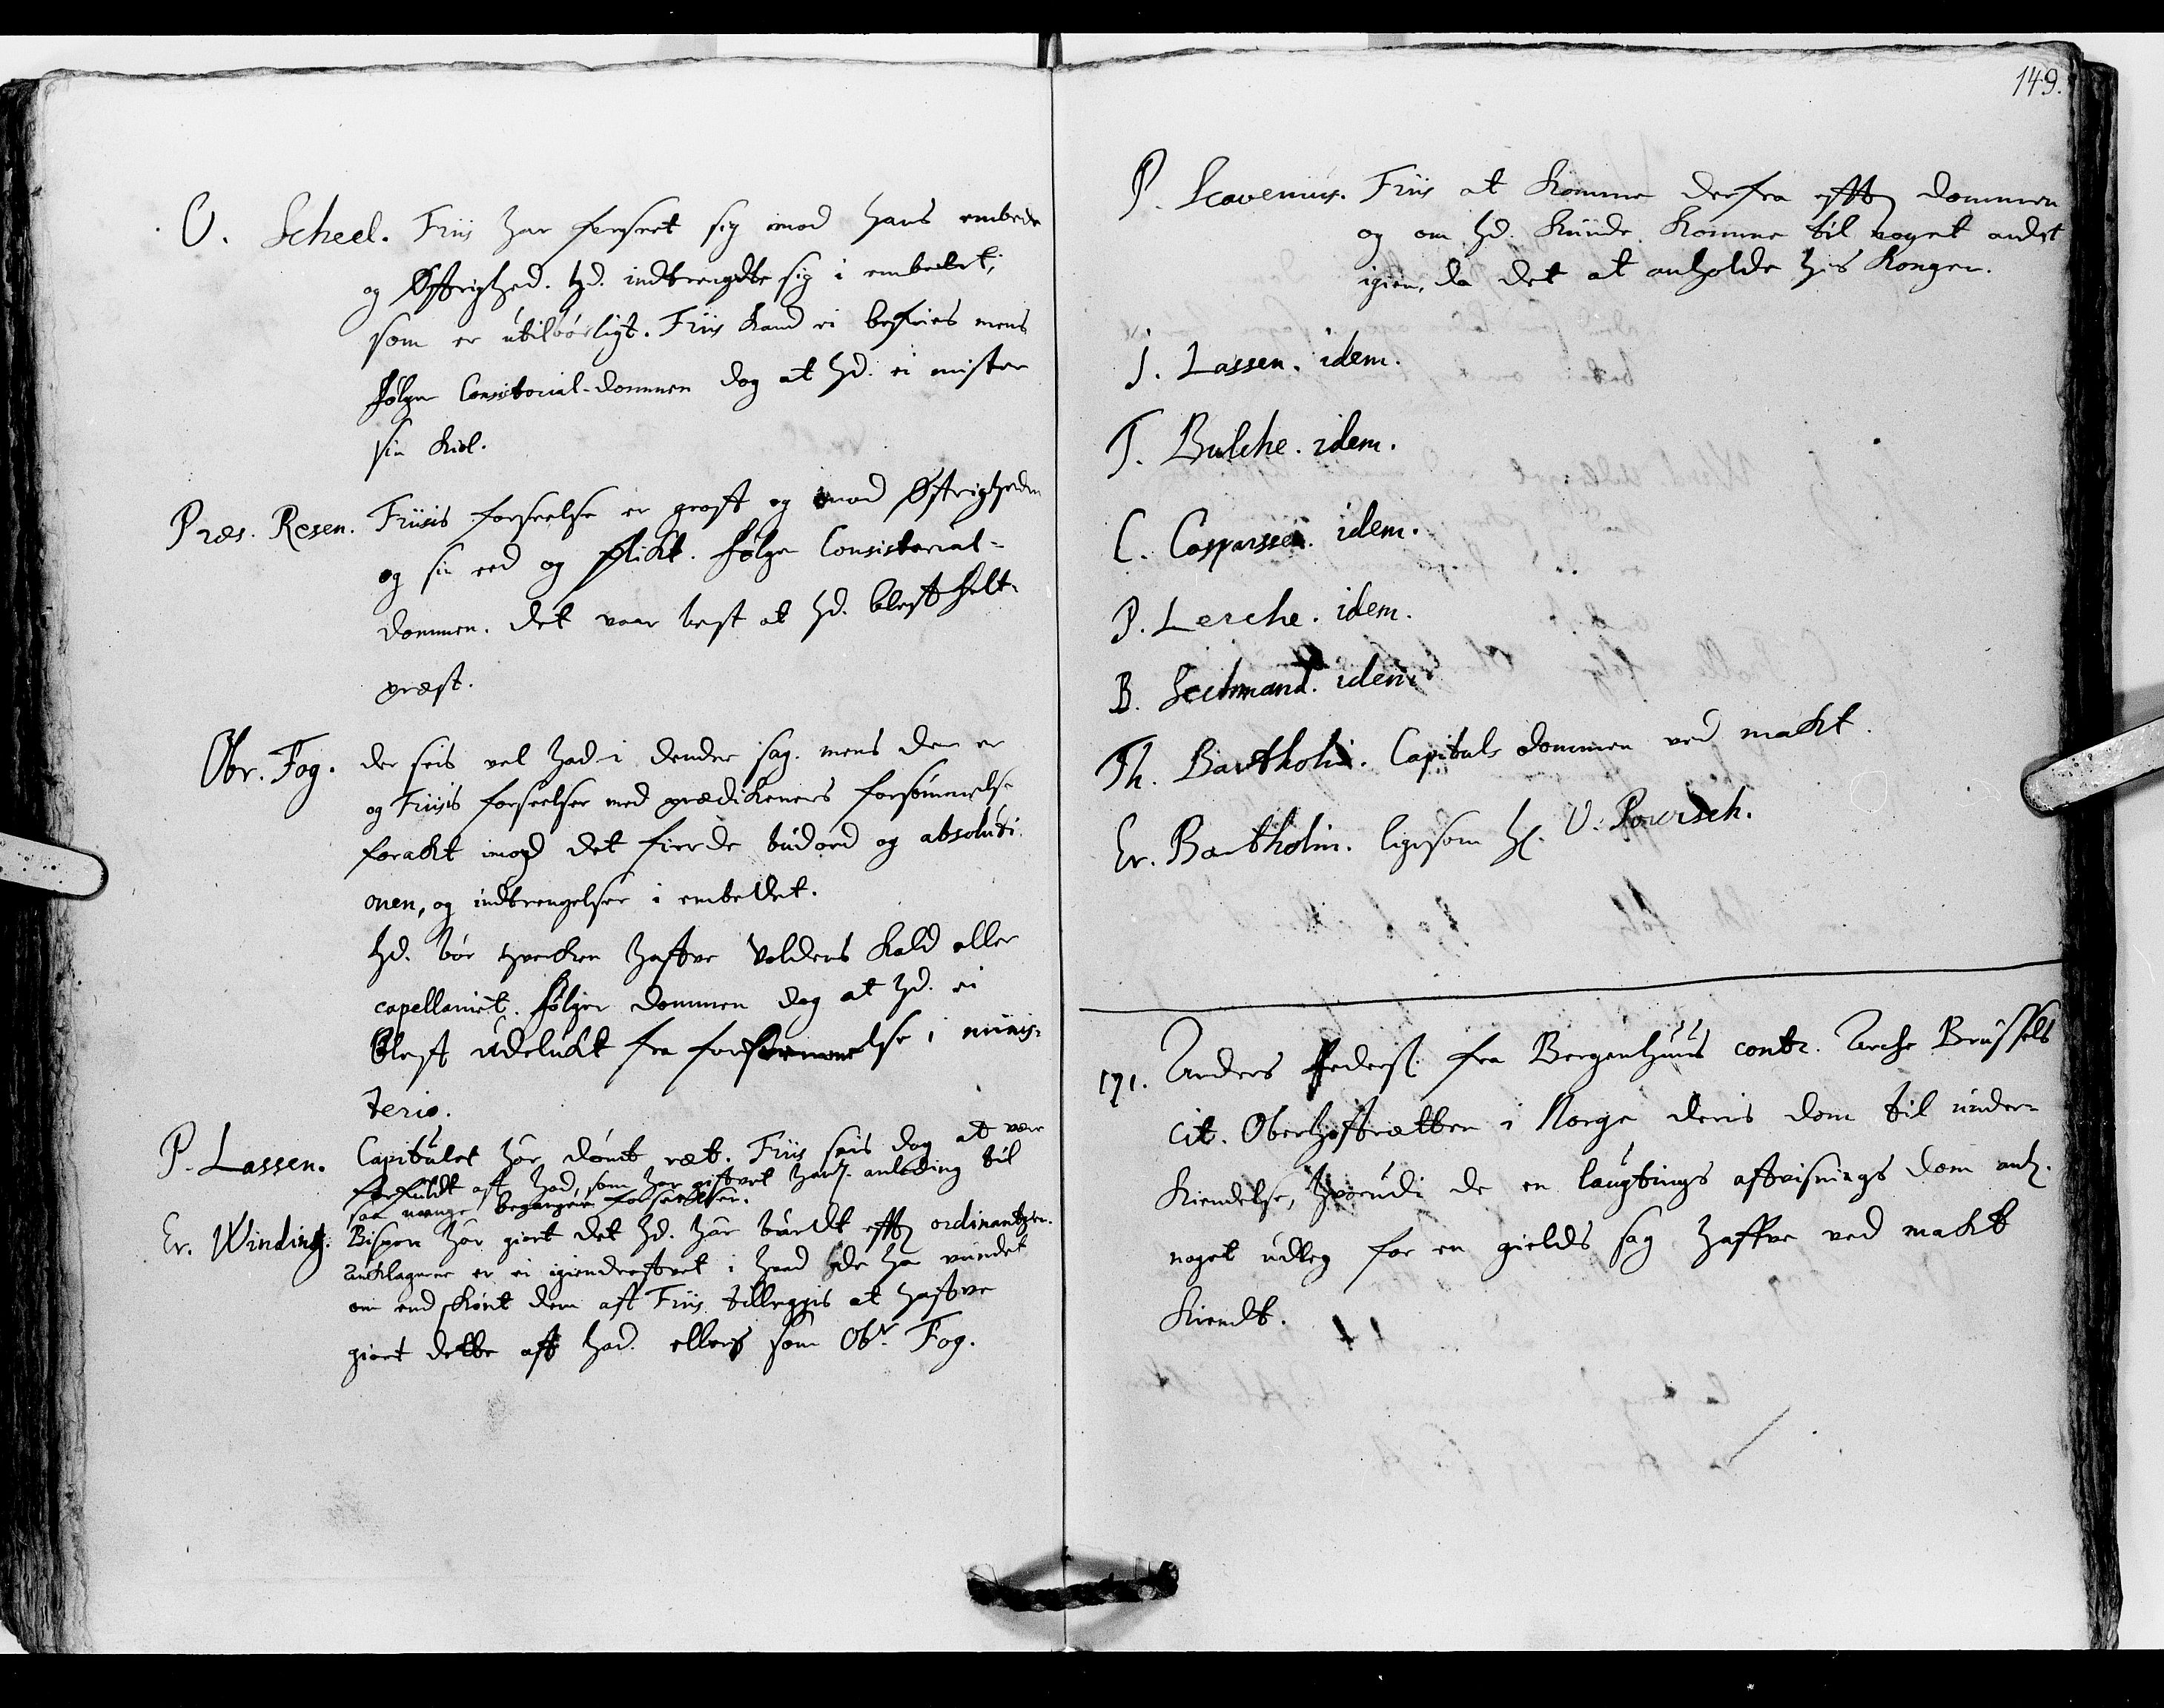 O. Scheel. Friis har forseet sig imod hans embede
og Øfrighed. hd. indtrengdte sig i embedet,
som er utilbørligt. Friis kand ei befries mens
følger Consistorial-dommen dog at hd. ei mister
sin kiol.
Præs. Resen. Friisis forseelse er groft og imod Øfrigheden
og sin eed og plikt. følger Consistorial-
dommen. det vaar best at hd. bleff helt
præst.
Obr. Fog. der seis vel had i denden sag. mens der er
og Friisis forseelser med prædikeners forsømmelse
forakt imod det fierde budord og absoluti
onen, og indtrengelser i embedet.
hd. bør hverken haffve Voldens kald eller
capellaniet. følger dommen dog at hd. ei
bleff udelukt fra forfremmelse i minis-
terio.
P. Lassen. Capitulet har dømt ræt. Friis seis dog at være
forfuldt aff had, som har gifvet hans. anleding til
saa mange begangene forseelser.
Er. Winding. Bispen har giort det hd. har burdt efft ordinantzen.
Anklagerne er ei igiendrefvet i hvad de ha vundet
om end skiønt dem aff Friis tilleggis at haffve
giort dette aff had. ellers som Obr. Fog.
149.
P. Scavenius. Friis at komme derfra efft dommen
og om hd. kunde komme til noget andet
igien, da det at anholde hos kongen.
J. Lassen. idem.
T. Bulche. idem.
C. Casparssen. idem.
P. Lerche. idem.
B. idem
Th. Bartholin. Capituls dommen ved makt.
Er. Bartholin. ligesom H. V. Powisch.
171. Anders Peders. fra Bergenhuus contr. Arche Brüssels
cit. Oberhoffretten i Norge deris dom til under-
kiendelse, hvorudi de en laugtings affvisnings dom anl.
noget udleg for en gields sag haffve ved makt
kiendt.